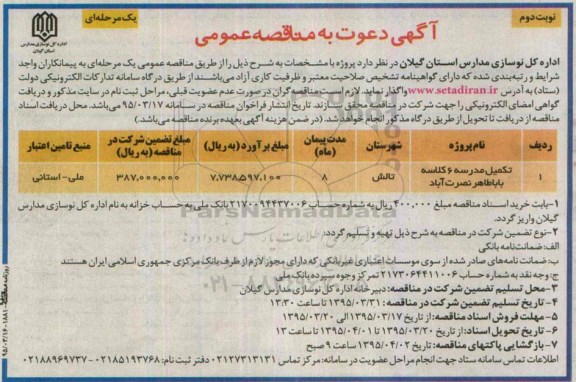 نوبت دوم
یک مرحله‌ای
آگهی دعوت به مناقصه عمومی
اداره کل نوسازی مدارس
استان گیلان
اداره کل نوسازی مدارس استان گیلان در نظر دارد پروژه با مشخصات به شرح ذیل را از طریق مناقصه عمومی یک مرحله‌ای به پیمانکاران واجد
شرایط و رتبه‌بندی شده که دارای گواهینامه تشخیص صلاحیت معتبر و ظرفیت کاری آزاد می‌باشند از طریق درگاه سامانه تدارکات الکترونیکی دولت
(ستاد) به آدرس www.setadiran.ir واگذار نماید. لازم است مناقصه‌گران در صورت عدم عضویت قبلی، مراحل ثبت نام در سایت مذکور و دریافت
گواهی امضای الکترونیکی را جهت شرکت در مناقصه محقق سازند. تاریخ انتشار فراخوان مناقصه در سامانه ۹۵/۰۳/۱۷ می‌باشد. محل دریافت اسناد
مناقصه از دریافت تا تحویل از طریق درگاه مذکور انجام خواهد شد. (در ضمن هزینه آگهی بعهده برنده مناقصه می‌باشد.)
ردیف نام پروژه شهرستان مدت پیمان (ماه) مبلغ برآورد (به ریال) مبلغ تضمین شرکت در مناقصه (به ریال) منبع تامین اعتبار
۱ تکمیل مدرسه ۶ کلاسه باباطاهر نصرت آباد تالش ۸ ۷.۷۳۸۵۹۷.۱۰۰ ۳۸۷,۰۰۰,۰۰۰ ملی-استانی
۱-بابت خرید اسناد مناقصه مبلغ ۴۰۰,۰۰۰ ریال به شماره حساب ۲۱۷۰۰۹۴۴۳۷۰۰۶ بانک ملی به حساب خزانه به نام اداره کل نوسازی مدارس
گیلان واریز گردد.
۲-نوع تضمین شرکت در مناقصه به شرح ذیل تهیه و تسلیم گردد:
الف: ضمانت‌نامه بانکی
ب: ضمانت نامه‌های صادر شده از سوی موسسات اعتباری غیربانکی که دارای مجوز لازم از طرف بانک مرکزی جمهوری اسلامی ایران هستند
ج: وجه نقد به شماره حساب ۲۱۷۳۰۶۴۴۱۱۰۰۶ تمرکز وجوه سپرده بانک ملی
۳-محل تسلیم تضمین شرکت در مناقصه: دبیرخانه اداره کل نوسازی مدارس گیلان
۴- تاریخ تسلیم تضمین شرکت در مناقصه: ۱۳۹۵/۰۳/۳۱ تا ساعت ۱۳:۳۰
۵- مهلت فروش اسناد مناقصه: از تاریخ ۱۳۹۵/۰۳/۱۷ الی ۱۳۹۵/۰۳/۲۰
۶- تاریخ تحویل اسناد: از تاریخ ۱۳۹۵/۰۳/۲۰ تا ۱۳۹۵/۰۴/۰۱ تا ساعت ۱۳
۷- بازگشایی پاکتهای مناقصه: تاریخ ۱۳۹۵/۰۴/۰۲ ساعت ۹ صبح
اطلاعات تماس سامانه ستاد جهت انجام مراحل عضویت در سامانه: مرکز تماس ۰۲۱۲۷۳۱۳۱۳۱ دفتر ثبت نام: ۰۲۱۸۵۱۹۳۷۶۸-۰۲۱۸۸۹۶۹۷۳۷
ParsNamadData